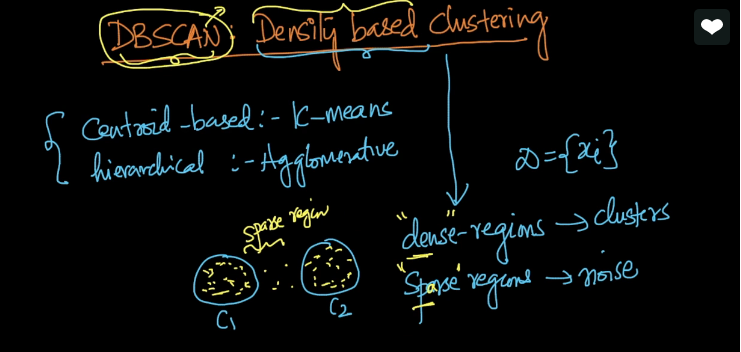 DBSCAN: Density based clustering
Centroid-based:- K-means
hierarchical :- Agglomerative
D={xi}
sparse region
"dense"-regions → clusters
"Sparse" regions → noise
C1
C2